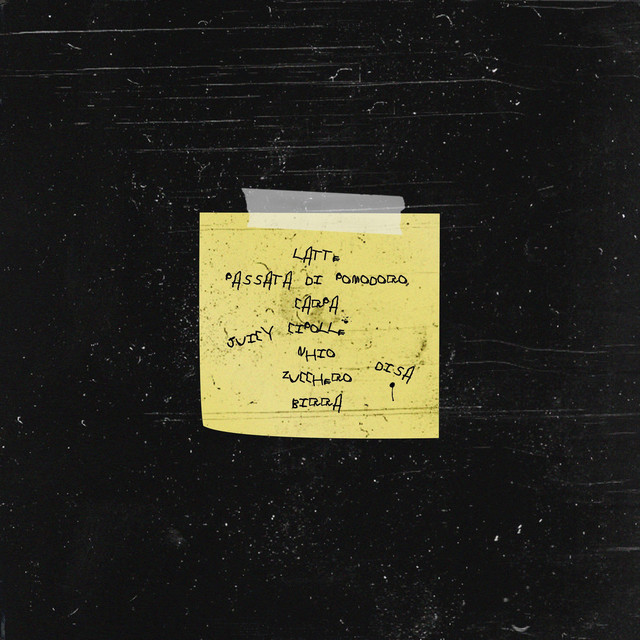 LATTE
PASSATA DI POMODORO,
CARPA
JUICY CIPOLLE
NHIO
DISA
ZUCCHERO
BIRRA